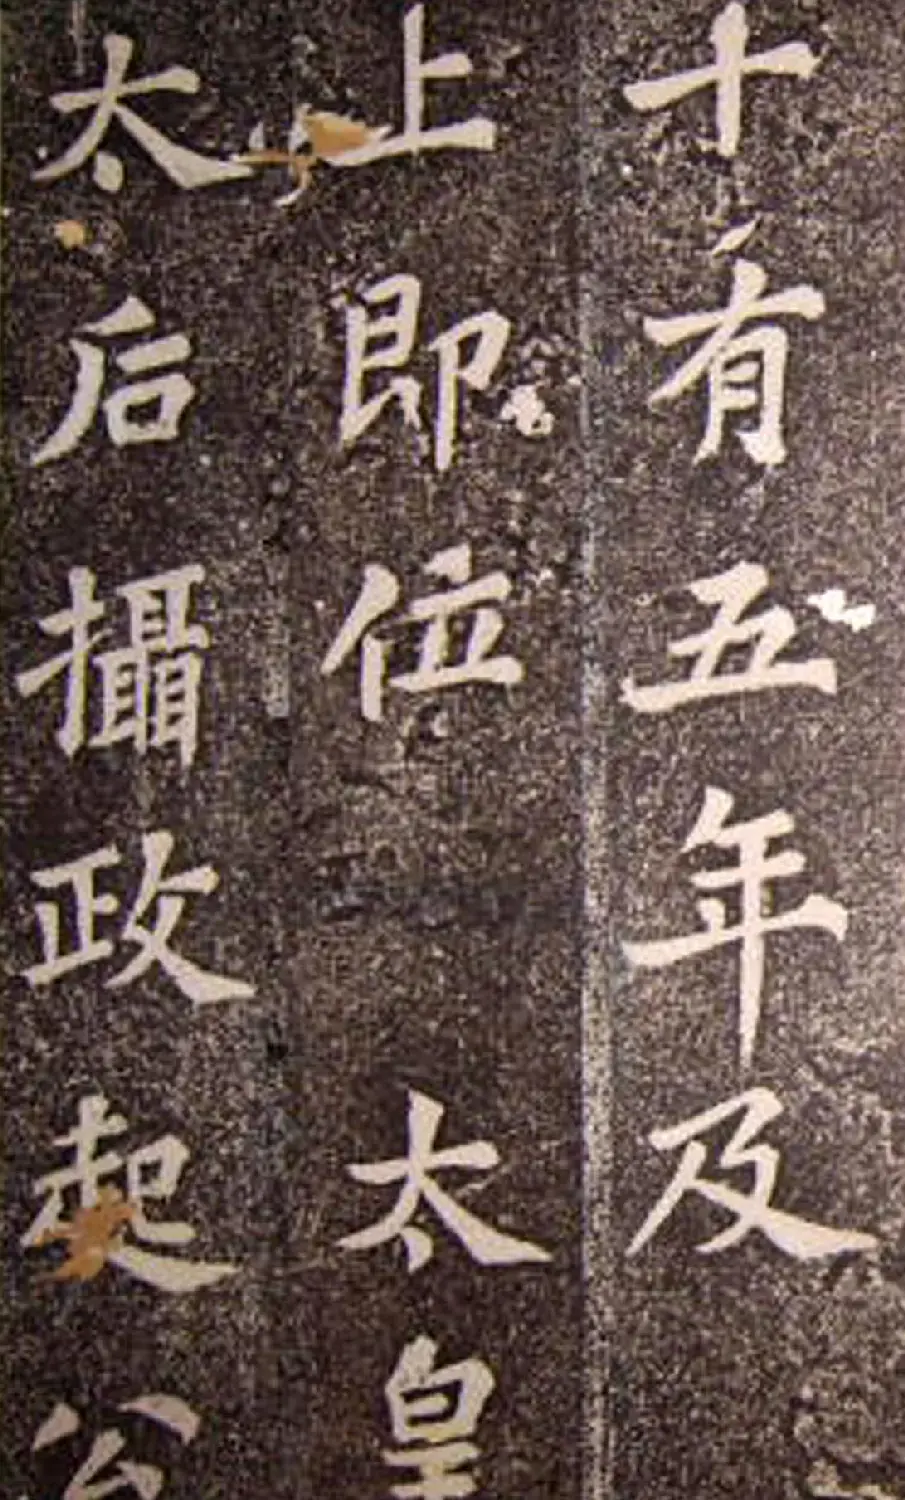 十有五年及
上即位 太皇
太后攝政起公